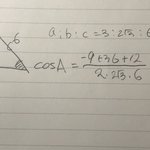 a : b : c = 3 : 2√3 : 6
6
cosA = -9+36+12 / 2·2√3·6